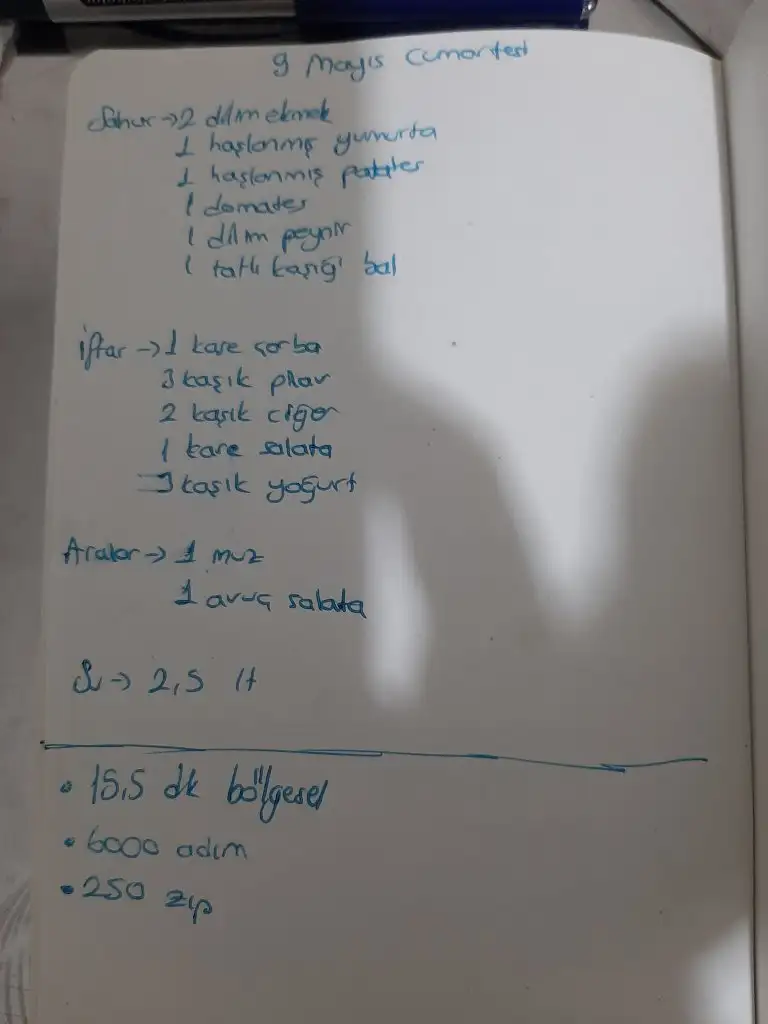 9 Mayıs Cumartesi
Sahur → 2 dilim ekmek
1 haşlanmış yumurta
1 haşlanmış patates
1 domates
1 dilim peynir
1 tatlı kaşığı bal
iftar → 1 kase çorba
3 kaşık pilav
2 kaşık ciğer
1 kase salata
3 kaşık yoğurt
Aralar → 1 muz
1 avuç salata
Su → 2,5 lt
• 15,5 dk bölgesel
• 6000 adım
• 250 zıp